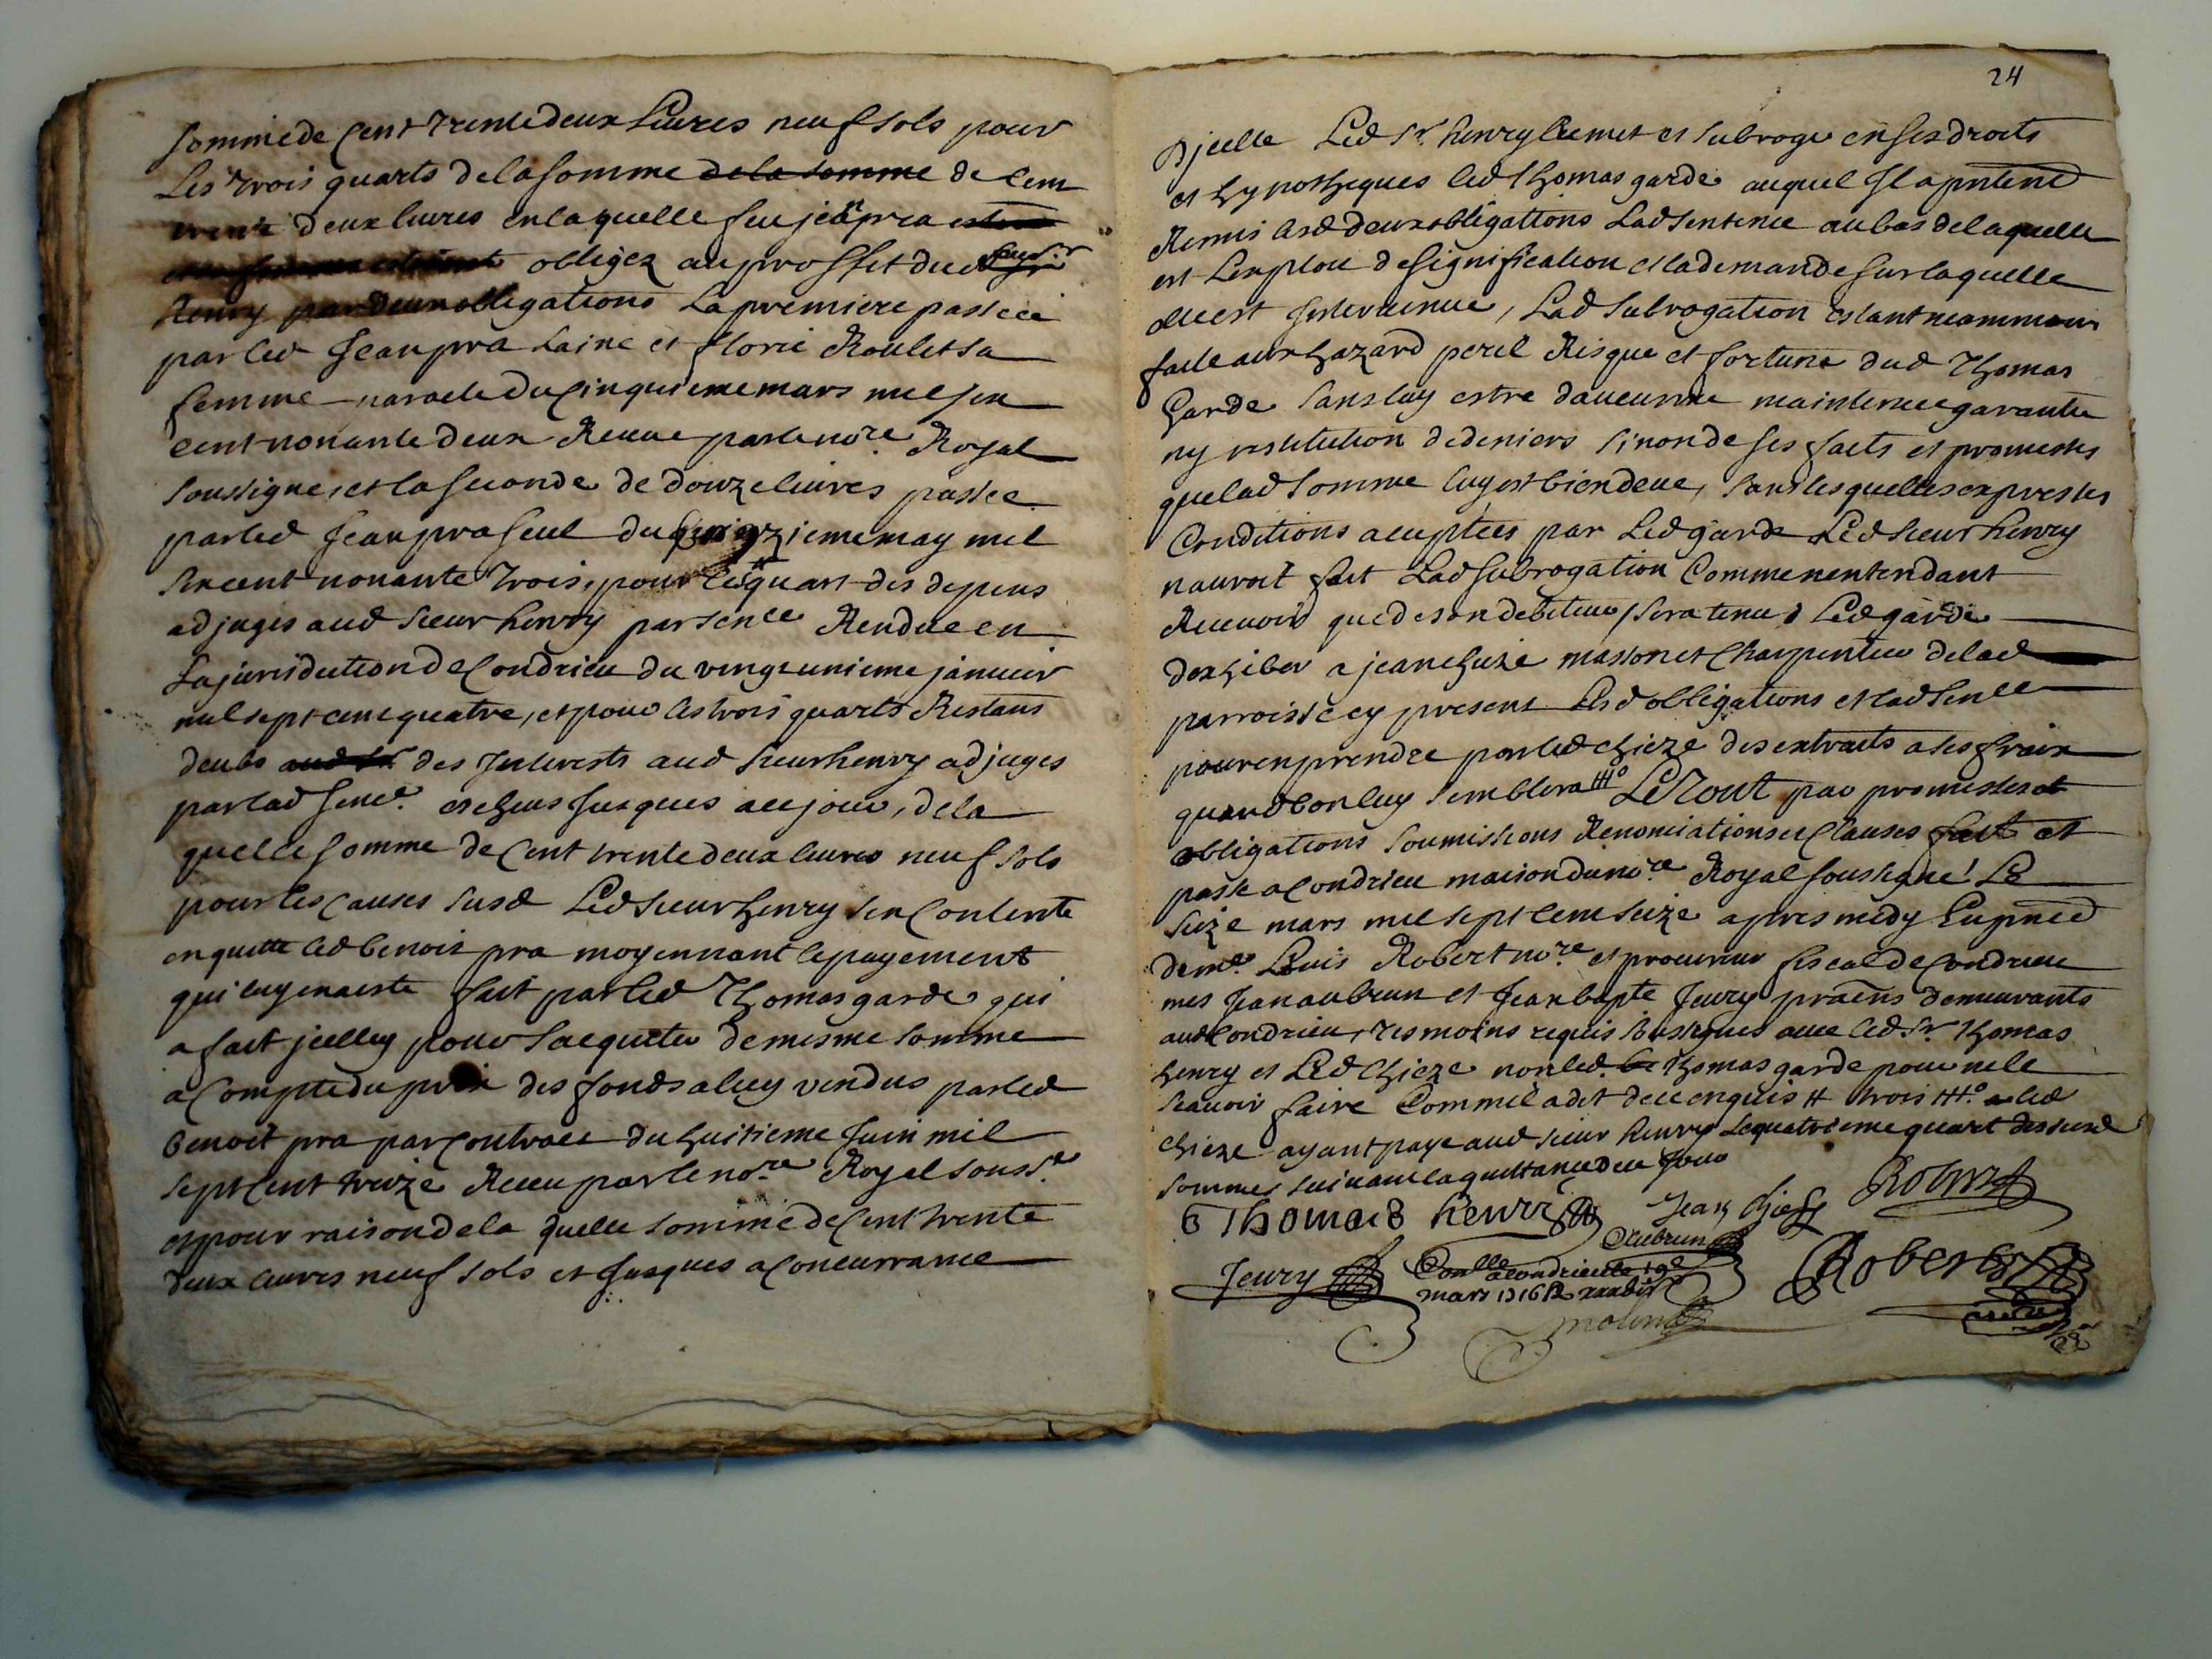 sommede Cent trentedeux Livres neuf sols pour
Les trois quarts delasomme dela somme de Cent
trente deux livres enlaquelle feu jean pra
obligez auproffit dud feu Sr
henry par deux obligations La premiere passee
par led Jean pra Laine et florie Roulet sa
femme paracte Du Cinquieme mars mil six
cent nonante deux Receue parle nore. Royal
soussigne, et la seconde de douze livres passee
par led Jean pra seul du quinzieme may mil
six cent nonante trois, pour les quart des depens
adjuges aud sieur henry par sence Rendue en
La jurisdiction de Condrieu du vingt unieme janvier
mil sept cent quatre, et pour les trois quarts Restans
deubs aud Sr des Interests aud sieur henry adjuges
par lad sence. escheus jusques a ce jour, de la
quelle somme de Cent trente deux livres neuf sols
pour les Causes susd Led sieur henry sen Contente
en quitte led benoit pra moyennant le payement
qui luy en a este fait par led Thomas garde qui
a fait jcelluy pour sacquiter de mesme somme
a Compte du prix des fonds a luy vendus par led
Benoit pra par Contract du huitieme Juin mil
sept Cent treize Receu par le nore Royal souss.e
et pour raison de la quelle somme de Cent trente
deux livres neuf sols et jusques a Concurrance
24
Djcelle Led Sr. henry a remet et subroge en ses droits
et hypotheques led Thomas garde auquel Il a pntemt
Remis lesd deux obligations Lad sentence au bas de laquelle
est Lexploit de signification et la demande sur laquelle
elle est Intervenue, Lad subrogation estant neammoins
faite aux hazard peril Risque et fortune dud Thomas
Garde sans luy estre daucunne maintenue garantie
ny restitution de deniers sinon de ses faits et promesses
que lad somme luy est bien deue, sans lesquelles expresses
Conditions acceptees par Led garde Led sieur henry
nauroit fait Lad subrogation Comme nentendant
Recevoir que de son debiteur, sera tenu Led garde
dexhiber a jean chieze masson et Charpentier de lad
parroisse cy present Lesd obligations et lad sence
pour en prendre par led chieze des extraits a ses fraix
quand bon luy semblera Le tout par promesses et
obligations soumissions Renonciations et Clauses fait et
passe a Condrieu maison du nore Royal soussigne! Le
seize mars mil sept cent seize apres midy En pnce
de me. Louis Robert nore et procureur fiscal de Condrieu
mes Jean aubrun et Jean bapte Jeury praticiens demeurants
aud Condrieu, tesmoins requis soussignes avec led Sr Thomas
henry et Led chieze non led Thomas garde pour ne le
scavoir faire Comme il a dit de ce enquis H trois led
chieze ayant paye aud sieur henry Le quatrieme quart des susd
sommes suivant la quittance de ce jour
Thomas henri Jean Chieze Robert
Aubrun
Jeury Conlle a Condrieu le 19e Robert
mars 1716
molin